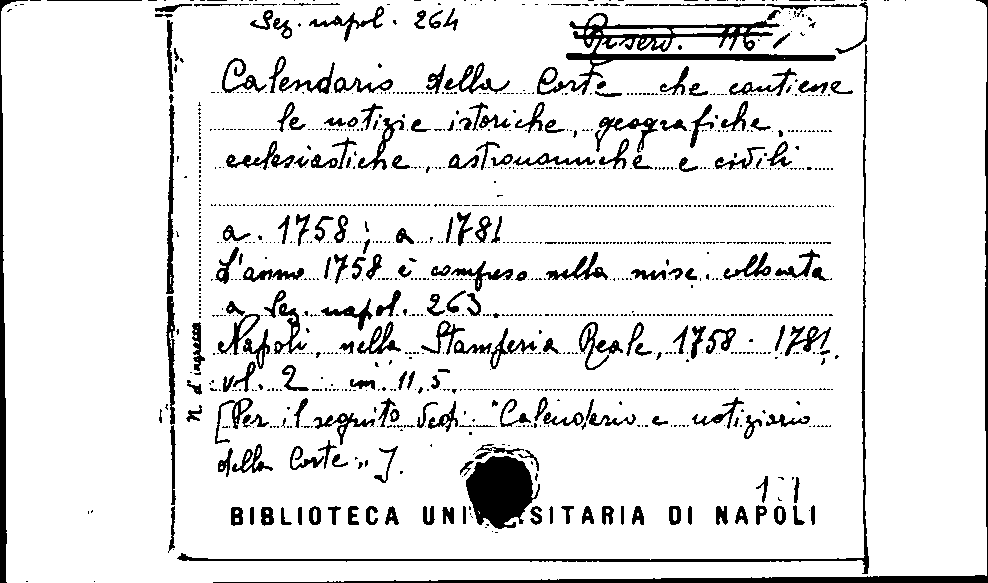 Sez. napol. 264
Riserv. 116
Calendario della Corte che contiene
le notizie istoriche, geografiche,
ecclesiastiche, astronomiche e civili.
a. 1758; a. 1781
L'anno 1758 è compreso nella misc. collocata
a Sez. napol. 263.
Napoli, nella Stamperia Reale, 1758 - 1781.
vol. 2 in 11,5.
[Per il seguito vedi: "Calendario e notiziario
della Corte"].
N. d'ingresso
BIBLIOTECA UNIVERSITARIA DI NAPOLI